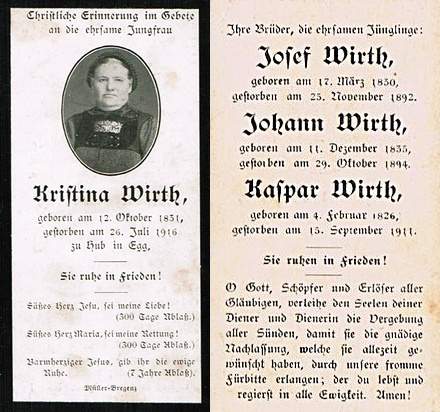 Christliche Erinnerung im Gebete
an die ehrsame Jungfrau
Kristina Wirth,
geboren am 12. Oktober 1831,
gestorben am 26. Juli 1916
zu Hub in Egg,
Sie ruhe in Frieden!
Süßes Herz Jesu, sei meine Liebe!
(300 Tage Ablaß.)
Süßes Herz Maria, sei meine Rettung!
(300 Tage Ablaß.)
Barmherziger Jesus, gib ihr die ewige
Ruhe. (7 Jahre Ablaß.)
Müller-Bregenz
Ihre Brüder, die ehrsamen Jünglinge:
Josef Wirth,
geboren am 17. März 1830,
gestorben am 25. November 1892.
Johann Wirth,
geboren am 11. Dezember 1835,
gestorben am 29. Oktober 1894.
Kaspar Wirth,
geboren am 4. Februar 1826,
gestorben am 15. September 1911.
Sie ruhen in Frieden!
O Gott, Schöpfer und Erlöser aller
Gläubigen, verleihe den Seelen deiner
Diener und Dienerin die Vergebung
aller Sünden, damit sie die gnädige
Nachlassung, welche sie allezeit ge-
wünscht haben, durch unsere fromme
Fürbitte erlangen; der du lebst und
regierst in alle Ewigkeit. Amen!